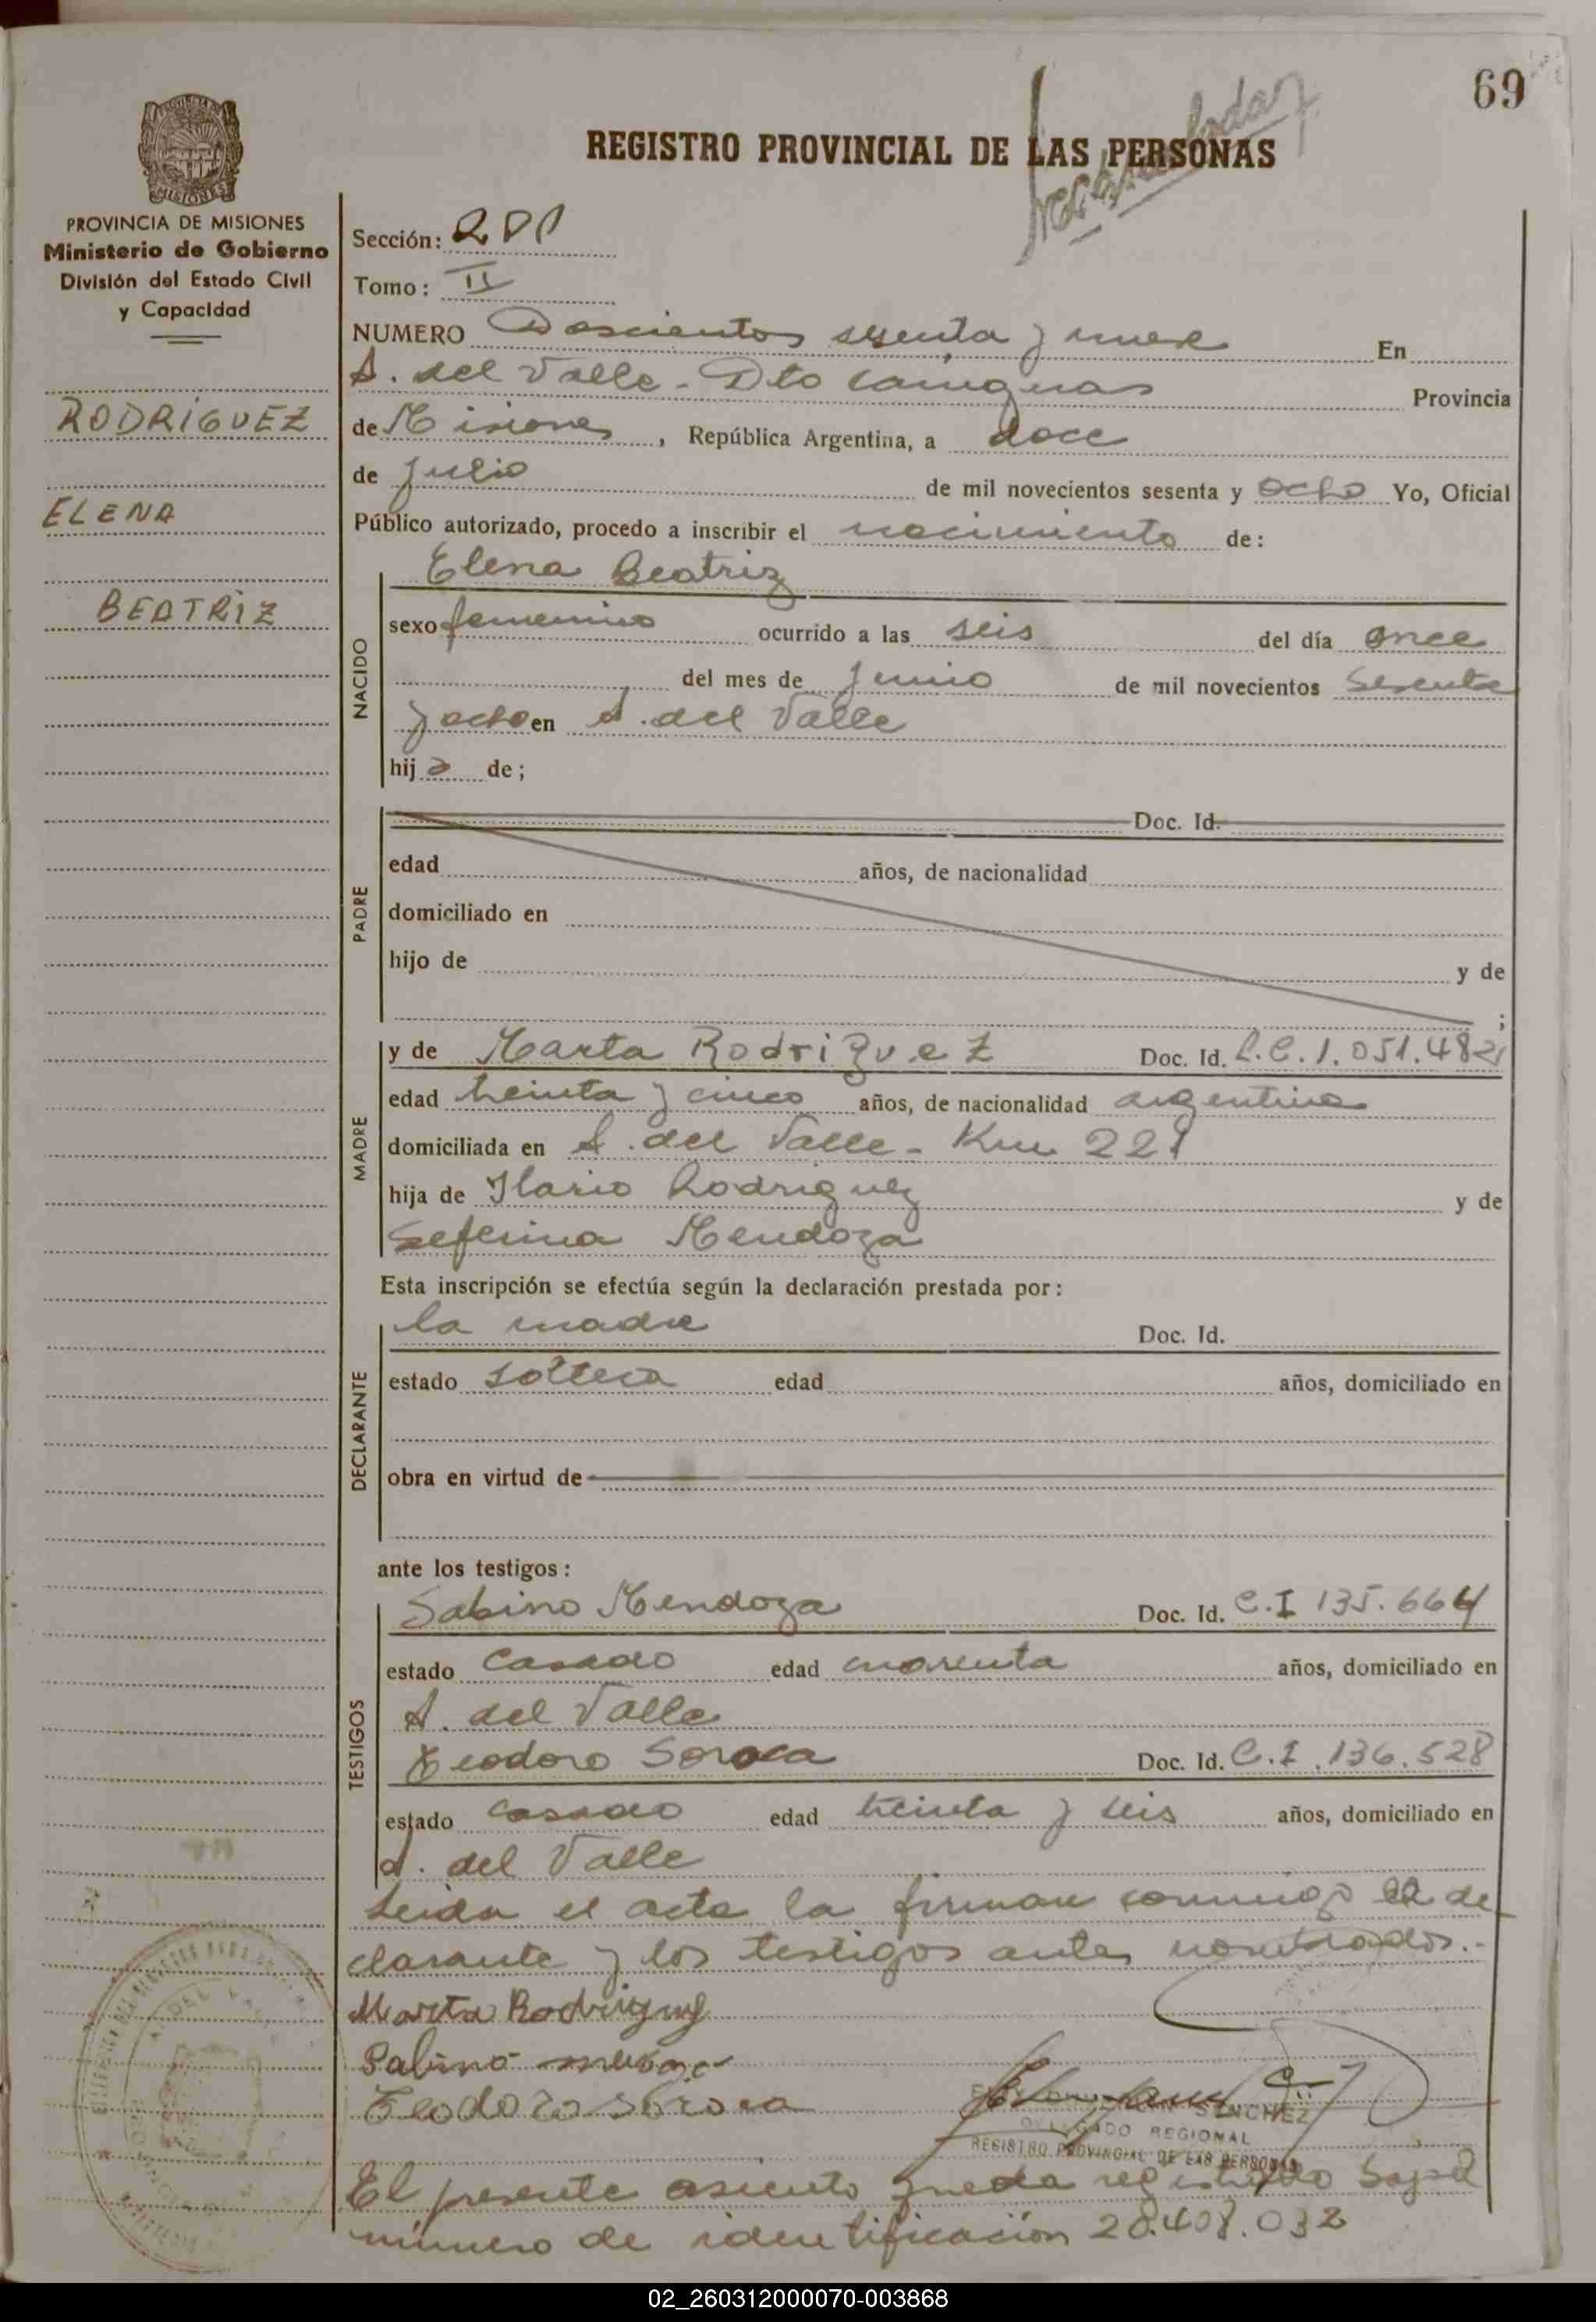 69
REGISTRO PROVINCIAL DE LAS PERSONAS
PROVINCIA DE MISIONES
Ministerio de Gobierno
División del Estado Civil
y Capacidad
RODRÍGUEZ
ELENA
BEATRÍZ
Sección:
Tomo: II
NUMERO Doscientos sesenta y nueve En
A. del Valle - Dto Cainguas Provincia
de Misiones, República Argentina, a doce
de Julio de mil novecientos sesenta y ocho Yo, Oficial
Público autorizado, procedo a inscribir el nacimiento de:
Elena Beatriz
NACIDO
sexo femenino ocurrido a las seis del día once
del mes de Junio de mil novecientos sesenta
y ocho en A. del Valle
hija de;
PADRE
Doc. Id.
edad años, de nacionalidad
domiciliado en
hijo de y de
;
MADRE
y de Marta Rodriguez Doc. Id. L.C. 1.051.482
edad treinta y cinco años, de nacionalidad argentina
domiciliada en A. del Valle - Km 221
hija de Ilario Rodriguez y de
Seferina Mendoza
Esta inscripción se efectúa según la declaración prestada por:
DECLARANTE
la madre Doc. Id.
estado soltera edad años, domiciliado en
obra en virtud de
ante los testigos:
TESTIGOS
Sabino Mendoza Doc. Id. C.I 135.664
estado casado edad cuarenta años, domiciliado en
A. del Valle
Teodoro Soroca Doc. Id. C.I. 136.528
estado casado edad treinta y seis años, domiciliado en
A. del Valle
Leida el acta la firman conmigo la de
clarante y los testigos antes nombrados.-
Marta Rodriguez
Sabino
Teodoro Soroca
SANCHEZ
DELEGADO REGIONAL
REGISTRO PROVINCIAL DE LAS PERSONAS
El presente asiento queda registrado bajo el
número de identificación 28.408.032
02_260312000070-003868